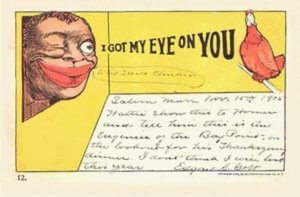 I GOT MY EYE ON YOU
Who Said Chicken
Salem Mass Nov. 15th 1905
Hattie show this to Homer
and tell him this is the
Eugenics of the Bay Point, on
the lookout for his Thanksgiving
dinner. I dont think I will look
this year Edgar S. Goff
12.